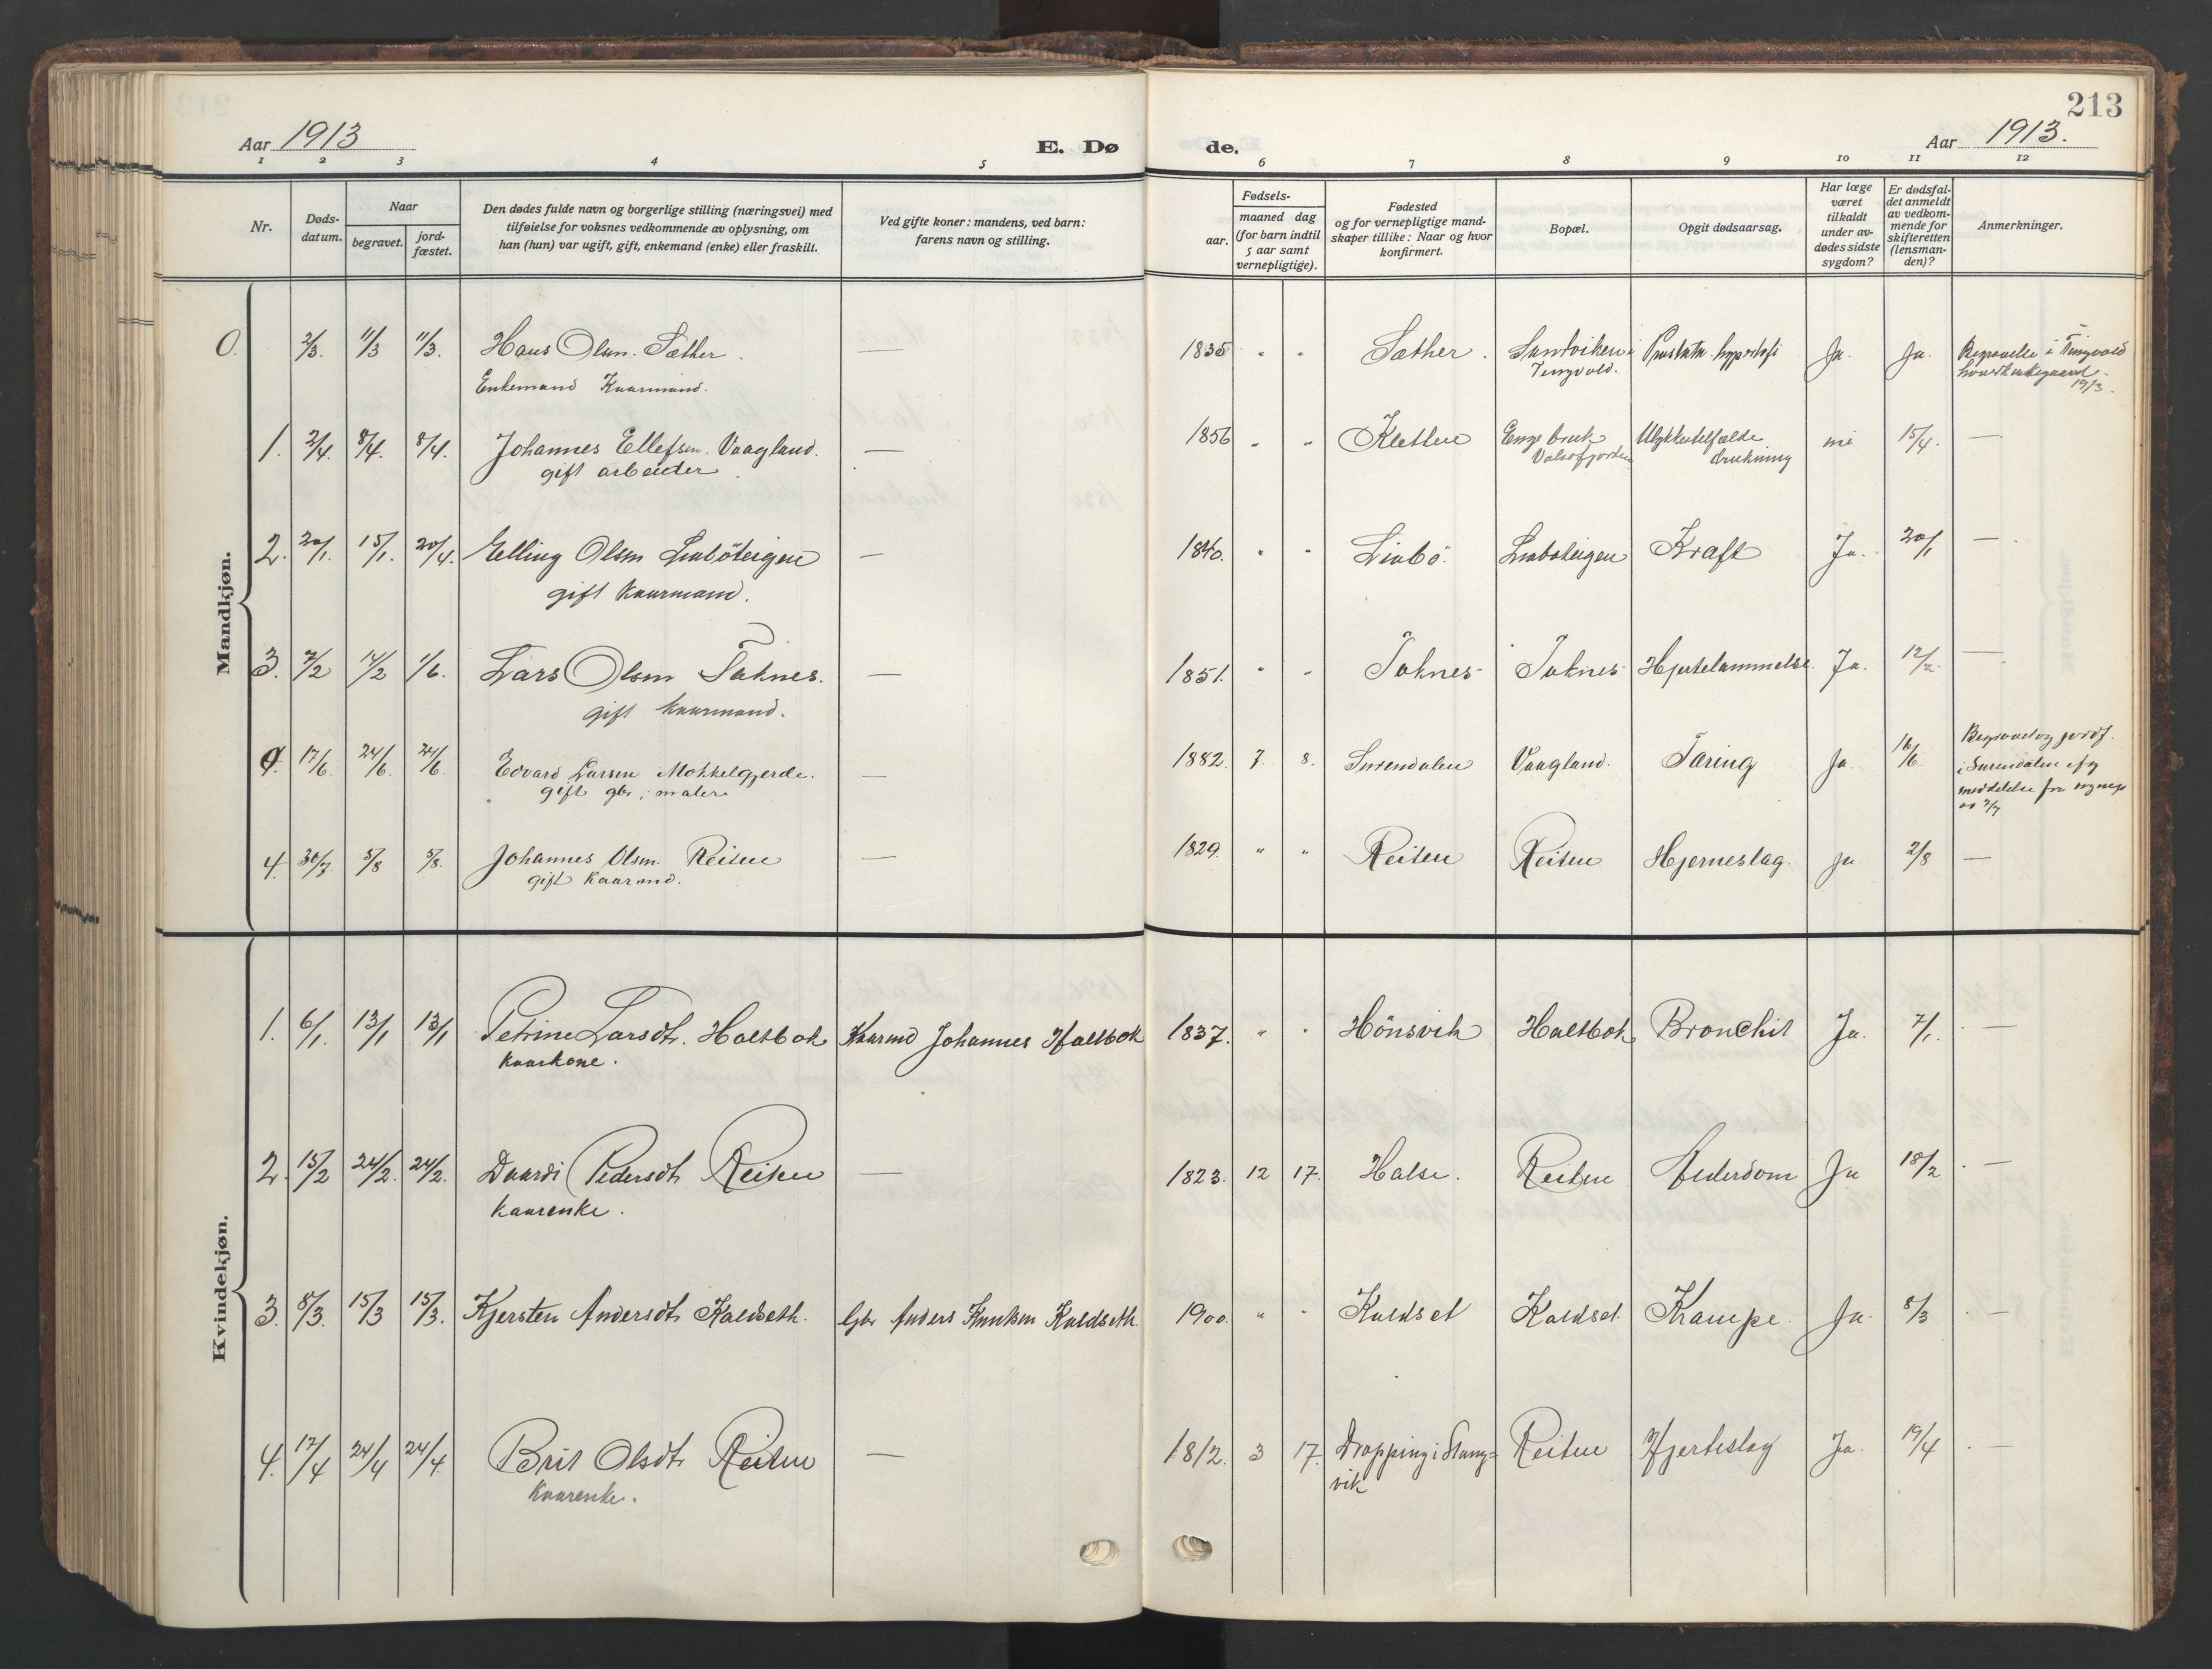 213
Aar 1913
E. Dø
de.
Aar 1913.
1 2 3 4 5 6 7 8 9 10 11 12
Nr.
Døds-
datum.
Naar
begravet.
jord-
fæstet.
Den dødes fulde navn og borgerlige stilling (næringsvei) med
tilføielse for voksnes vedkommende av oplysning, om
han (hun) var ugift, gift, enkemand (enke) eller fraskilt.
Ved gifte koner: mandens, ved barn:
farens navn og stilling.
Fødsels-
aar.
maaned dag
(for barn indtil
5 aar samt
vernepligtige).
Fødested
og for vernepligtige mand-
skaper tillike: Naar og hvor
konfirmert.
Bopæl.
Opgit dødsaarsag.
Har læge
været
tilkaldt
under av-
dødes sidste
sygdom?
Er dødsfal-
det anmeldt
av vedkom-
mende for
skifteretten
(lensman-
den)?
Anmerkninger.
Mandkjøn.
0. 2/3. 11/3 11/3. Hans Olsen Sæther. — 1835 " " Sæther. Sandviken i Prostata hypertrofi Ja. Ja. Begravelse i Tingvold
Enkemand Kaarmand. Tingvold. 19/3.
1. 2/4. 8/4. 8/4. Johannes Ellefsen Vaagland. — 1856 " " Kletten Enge bruk Ulykkestilfælde nei 15/4. —
gift arbeider Valsøfjorden drukning
2. 20/1. 15/1. 20/4. Elling Olsen Liaböteigen — 1840. " " Liabö. Liaboteigen Kræft Ja. 20/1 —
gift Kaarmand.
3. 7/2 14/2 1/6. Lars Olsen Töknes. — 1851. " " Töknes Töknes Hjertelammelse. Ja. 12/2. —
gift Kaarmand.
4. 17/6. 24/6. 24/6. Edvard Larsen Mokkelgjerde. — 1882. 7. 8. Surendalen Vaagland. Tæring Ja. 18/6 Begravet og jordf.
gift gbr, maler i Surendalen efg
meddelelse fra sognep
4. 30/7. 5/8 5/8. Johannes Olsen Reiten — 1829. " " Reiten Reiten Hjerneslag. Ja. 2/8 —
gift Kaarmd.
Kvindekjøn.
1. 6/1. 13/1 13/1 Petrine Larsdt. Halsbok Kaarmd Johannes Halsbok 1837. " " Hönsvik Halsbok Bronchit Ja. 7/1. —
Kaarkone.
2. 15/2 24/2. 24/2. Daardi Pedersdt. Reiten — 1823. 12 17. Halse. Reiten Alderdom Ja 18/2 —
Kaarenke.
3. 8/3. 15/3 15/3. Kjersten Andersdt. Kaldseth. Gbr Anders Knutsen Kaldseth. 1900. " " Kaldset Kaldset Krampe Ja. 8/3 —
4. 17/4 24/4 24/4. Brit Olsdt. Reiten — 1812. 3 17. Dropping i Stang= Reiten Hjerteslag Ja. 19/4 —
Kaarenke. vik